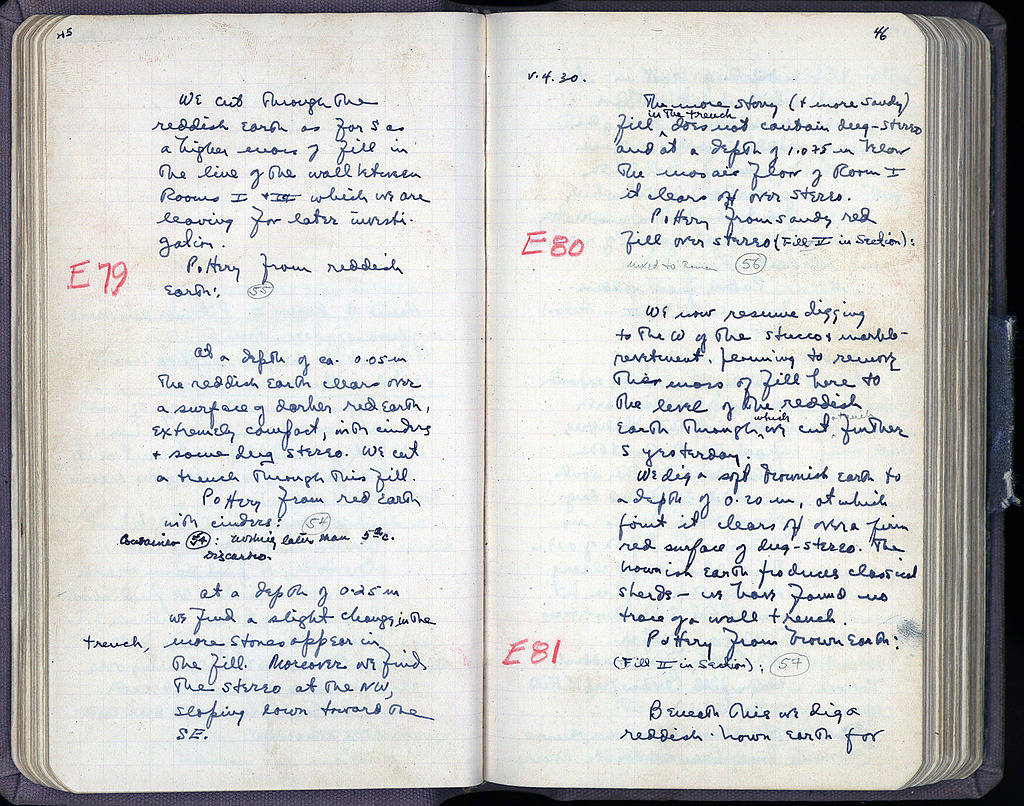 45
We cut through the
reddish earth as far S as
a higher mass of fill in
the line of the wall between
Rooms I + III which we are
leaving for later investi-
gation.
Pottery from reddish
E79
earth: 55
At a depth of ca. 0.05 m
the reddish earth clears over
a surface of darker red earth,
extremely compact, with cinders
+ some dug stereo. We cut
a trench through this fill.
Pottery from red earth
with cinders: 54
Container 54: nothing later than 5th c.
Discarded.
At a depth of 0.25 m
we find a slight change in the
trench, more stones appear in
the fill. Moreover we find
the stereo at the NW,
sloping down toward the
SE.
46
V.4.30.
The more stony (+ more sandy)
fill in the trench does not contain dug-stereo
and at a depth of 1.075 m below
the mosaic floor of Room I
it clears off over stereo.
Pottery from sandy red
E80
fill over stereo (Fill V in Section):
mixed to Roman 56
We now resume digging
to the W of the stucco + marble-
revetment, planning to remove
this mass of fill here to
the level of the reddish
earth through which we cut further
S yesterday.
We dig a soft brownish earth to
a depth of 0.20 m, at which
point it clears off over a firm
red surface of dug-stereo. The
brownish earth produces classical
sherds - we have found no
trace of a wall trench.
Pottery from brown earth:
E81
(Fill II in Section): 57
Beneath this we dig a
reddish-brown earth for